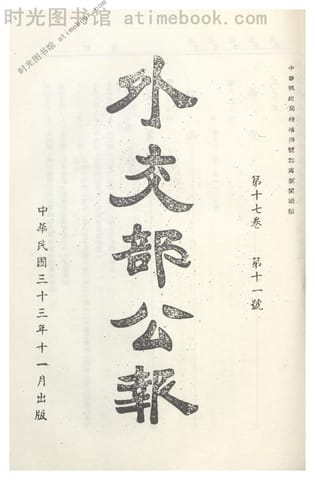 时光图书馆 atimebook.com
中華郵政局特准掛號認為新聞紙類
第十七卷 第十一號
外交部公報
中華民國三十三年十一月出版
时光图书馆 atimebook.com